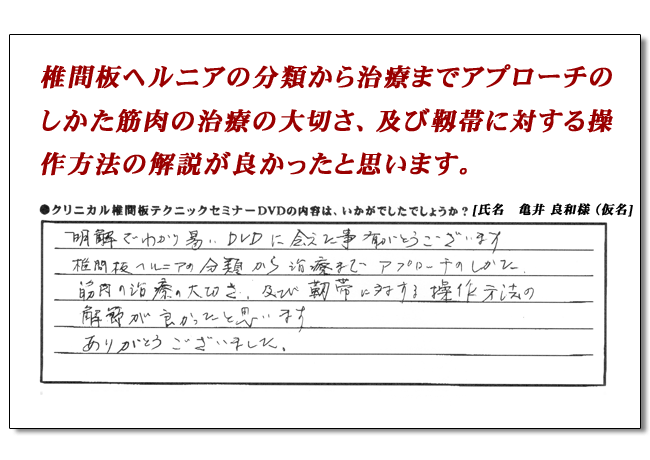 椎間板ヘルニアの分類から治療までアプローチの
しかた筋肉の治療の大切さ、及び靱帯に対する操
作方法の解説が良かったと思います。
●クリニカル椎間板テクニックセミナーDVDの内容は、いかがでしたでしょうか？[氏名　亀井 良和様（仮名]
明解でわかり易いDVDに会えた事有がとうございます
椎間板ヘルニアの分類から治療まで アプローチのしかた、
筋肉の治療の大切さ、及び 靱帯に対する操作方法の
解説が良かったと思います
ありがとうございました。